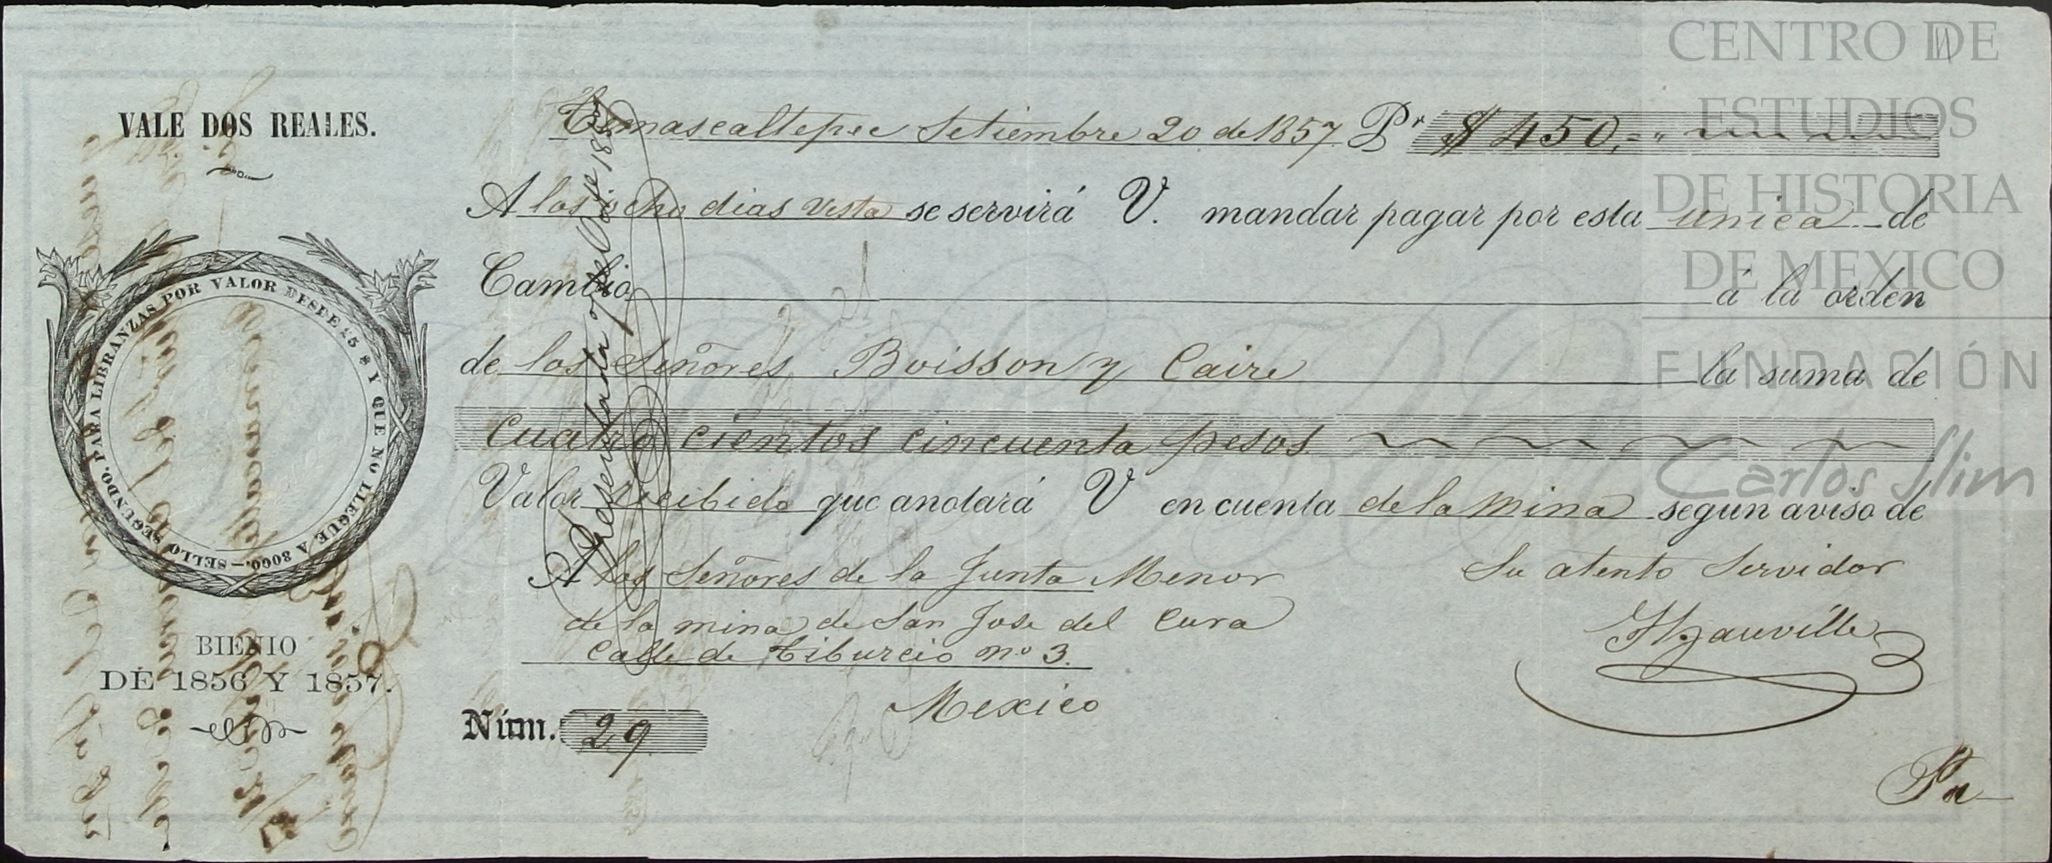 CENTRO DE
ESTUDIOS
DE HISTORIA
DE MEXICO
FUNDACIÓN
Carlos Slim
VALE DOS REALES.
SELLO SEGUNDO, PARA LIBRANZAS POR VALOR DESDE 25 $ Y QUE NO LLEGUE A 3000.
BIENIO
DE 1856 Y 1857.
Temascaltepec Setiembre 20 de 1857 Pr $ 450
A los ocho dias vista se servirá V. mandar pagar por esta unica de
Cambio á la orden
de los Señores Boisson y Caire la suma de
cuatro cientos cincuenta pesos
Valor recibido que anotará V en cuenta de la Mina segun aviso de
A los Señores de la Junta Menor
Su atento Servidor
de la mina de San Jose del Cura
Calle de Tiburcio no 3.
Mexico
Núm. 29
Presentada